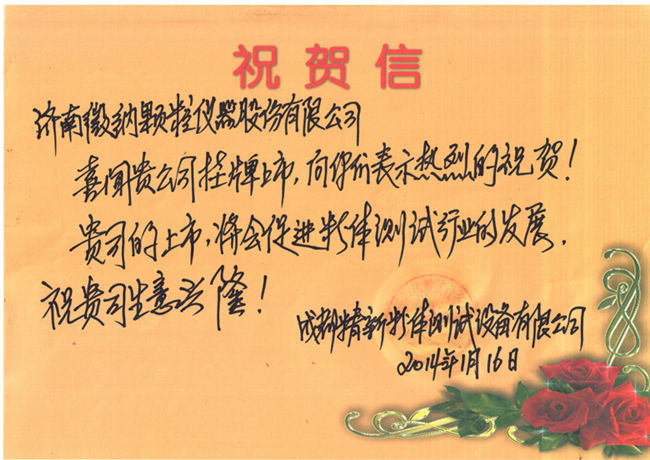 祝贺信
济南微纳颗粒仪器股份有限公司
喜闻贵公司挂牌上市,向你们表示热烈的祝贺!
贵司的上市,将会促进粉体测试行业的发展.
祝贵司生意兴隆!
成都精新粉体测试设备有限公司
2014年1月16日